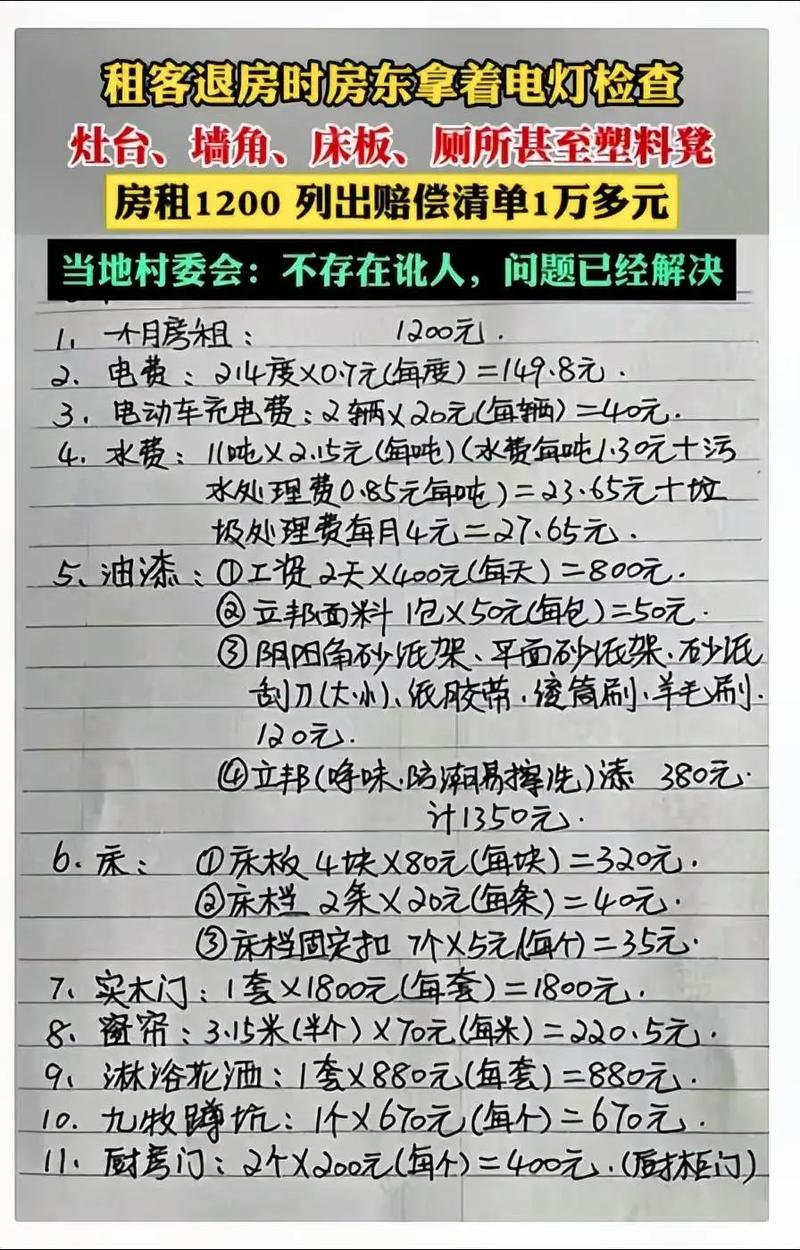 租客退房时房东拿着电灯检查
灶台、墙角、床板、厕所甚至塑料凳
房租1200 列出赔偿清单1万多元
当地村委会：不存在讹人，问题已经解决
1、一个月房租： 1200元.
2、电费：214度×0.7元(每度)=149.8元.
3、电动车充电费：2辆×20元(每辆)=40元.
4、水费：11吨×2.15元(每吨)(水费每吨1.30元+污
水处理费0.85元每吨)=23.65元+垃
圾处理费每月4元=27.65元.
5、油漆：①工资 2天×400元(每天)=800元.
②立邦面料 1包×50元(每包)=50元.
③阴阳角砂纸架、平面砂纸架、砂纸
刮刀(大小)、纸胶带、滚筒刷、羊毛刷.
120元.
④立邦(净味.防潮易擦洗)漆 380元.
计1350元.
6、床： ①床板 4块×80元(每块)=320元.
②床档 2条×20元(每条)=40元.
③床档固定扣 7个×5元(每个)=35元.
7、实木门：1套×1800元(每套)=1800元.
8、窗帘：3.15米(半个)×70元(每米)=220.5元.
9、淋浴花洒：1套×880元(每套)=880元.
10、九牧蹲坑：1个×670元(每个)=670元.
11、厨房门：2个×200元(每个)=400元.(厨柜门)